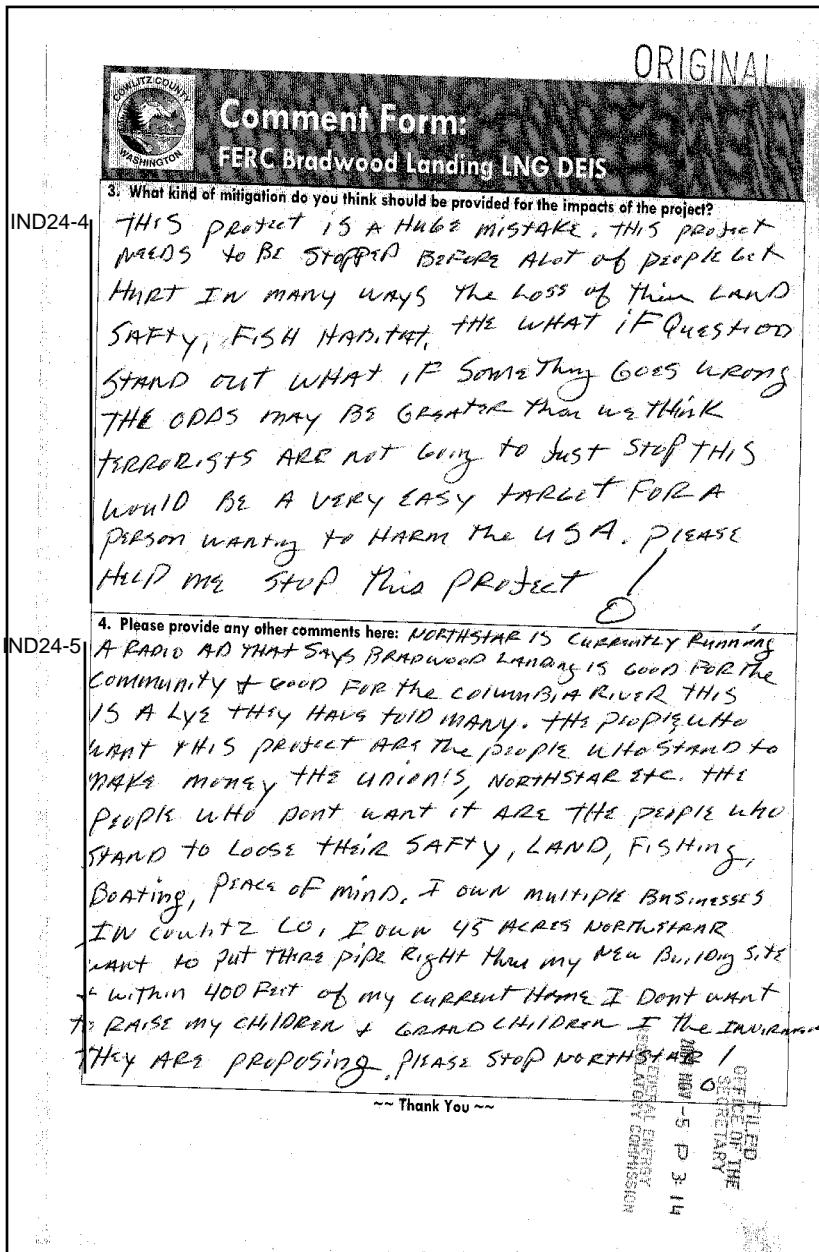 ORIGINAL
COWLITZ COUNTY
WASHINGTON
Comment Form:
FERC Bradwood Landing LNG DEIS
3. What kind of mitigation do you think should be provided for the impacts of the project?
IND24-4
THIS PROJECT IS A HUGE MISTAKE. THIS PROJECT
NEEDS to BE STOPPED BEFORE ALOT of PEOPLE GET
HURT IN MANY WAYS The LOSS of Their LAND
SAFTY, FISH HABITAT, THE WHAT IF QUESTION
STAND OUT WHAT IF SOMEThing GOES WRONG
THE ODDS MAY BE GREATER Than we THINK
TERRORISTS ARE NOT Going to Just STOP THIS
WOULD BE A VERY EASY TARGET FOR A
PERSON WANTing to HARM The USA. PLEASE
HELP ME STOP This PROJECT!
4. Please provide any other comments here: NORTHSTAR IS CURRENTLY Running
IND24-5
A RADIO AD THAT SAYS BRADWOOD LANDing IS GOOD FOR the
COMMUNITY + GOOD FOR the COLUMBIA RIVER THIS
IS A LYE THEY HAVE TOLD MANY. THE PEOPLE WHO
WANT THIS PROJECT ARE The PEOPLE WHO STAND TO
MAKE MONEY THE UNION'S, NORTHSTAR ETC. THE
PEOPLE WHO DONT WANT IT ARE THE PEOPLE WHO
STAND TO LOOSE THEIR SAFTY, LAND, FISHing,
BOATing, PEACE OF MIND. I OWN MULTIPLE BUSINESSES
IN COWLITZ CO, I OWN 45 ACRES NORTHSTAR
WANT to PUT THERE PIPE RIGHT thru my NEW BUILDING SITE
+ within 400 FEET of my CURRENT HOME I DONT WANT
TO RAISE my CHILDREN + GRANDCHILDREN I the
THEY ARE PROPOSing. PLEASE STOP NORTHSTAR!
~~ Thank You ~~
FILED
OFFICE OF THE
SECRETARY
NOV -5 P 3:14
FEDERAL ENERGY
REGULATORY COMMISSION